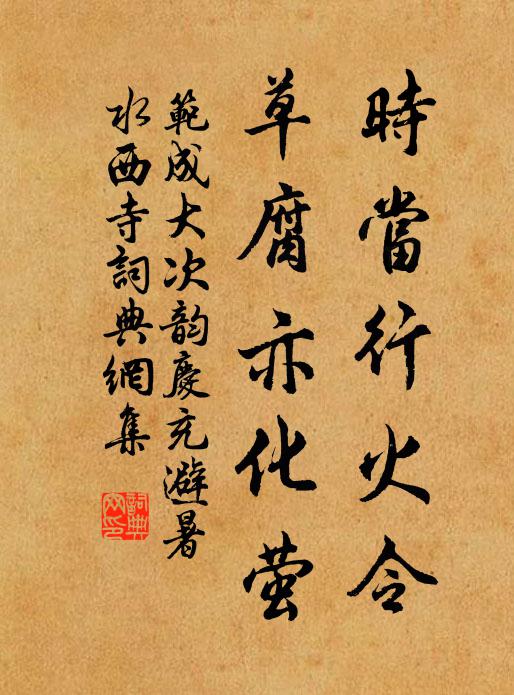 時當行火令
草腐亦化萤
範成大次韵慶充避暑
水西寺詞典網集
詞典
网印